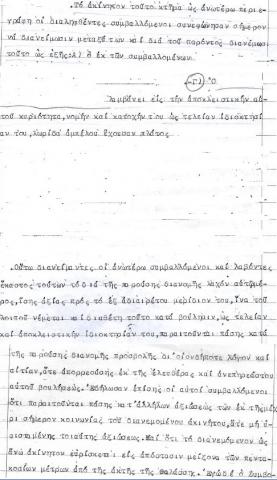 .Τό ἀκίνητον τοῦτο κτῆμα ὡς ἀνωτέρω περιε-
γράφη οἱ διαληφθέντες συμβαλλόμενοι συνεφώνησαν σήμερον
νά διανείμωσιν μεταξύ των καί διά τοῦ παρόντος διανέμωσι
τοῦτο ὡς ἑξῆς:α/ ὁ ἐκ τῶν συμβαλλομένων.
λαμβάνει εἰς τήν ἀποκλειστικήν αὐ-
τοῦ κυριότητα,νομήν καί κατοχήν του ὡς τελείαν ἰδιοκτησί
αν του,λωρίδα ἀμπέλου ἔχουσαν πλάτος
.Οὕτω διανείμαντες οἱ ἀνωτέρω συμβαλλόμενοι καί λαβόντες
ἕκαστος τούτων τό διά τῆς παρούσης διανομῆς λαχόν αὐτῷ
μέρος,ἴσης ἀξίας πρός τό ἐξ ἀδιαιρέτου μερίδιον του,ἵνα τοῦ
λοιποῦ νέμεται καί διαθέτῃ τοῦτο κατά βούλησιν,ὡς τελείαν
καί ἀποκλειστικήν ἰδιοκτησίαν του,παραιτοῦνται πάσης κατά
τῆς παρούσης διανομῆς προσβολῆς δι'οἱονδήποτε λόγον καί
αἰτίαν,ὅτε ἀπορρεούσης ἐκ τῆς ἐλευθέρας καί ἀνεπηρεάστου
αὐτοῦ βουλήσεως. Ἐδήλωσαν ἐπίσης οἱ αὐτοί συμβαλλόμενοι
ὅτι παραιτοῦνται πάσης κατ'ἀλλήλων ἀξιώσεως τῶν ἐκ τῆς μέχ
ρι σήμερον κοινωνίας τοῦ διανεμομένου ἀκινήτου,ἅτε μή ὑ-
φισταμένης τοιαύτης ἀξιώσεως. Καί ὅτι τό διανεμόμενον ὡς
ἄνω ἀκίνητον εὑρίσκεται εἰς ἀπόστασιν μείζονα τῶν πεντα-
κοσίων μέτρων ἀπό τῆς ἀκτῆς τῆς θαλάσσης.